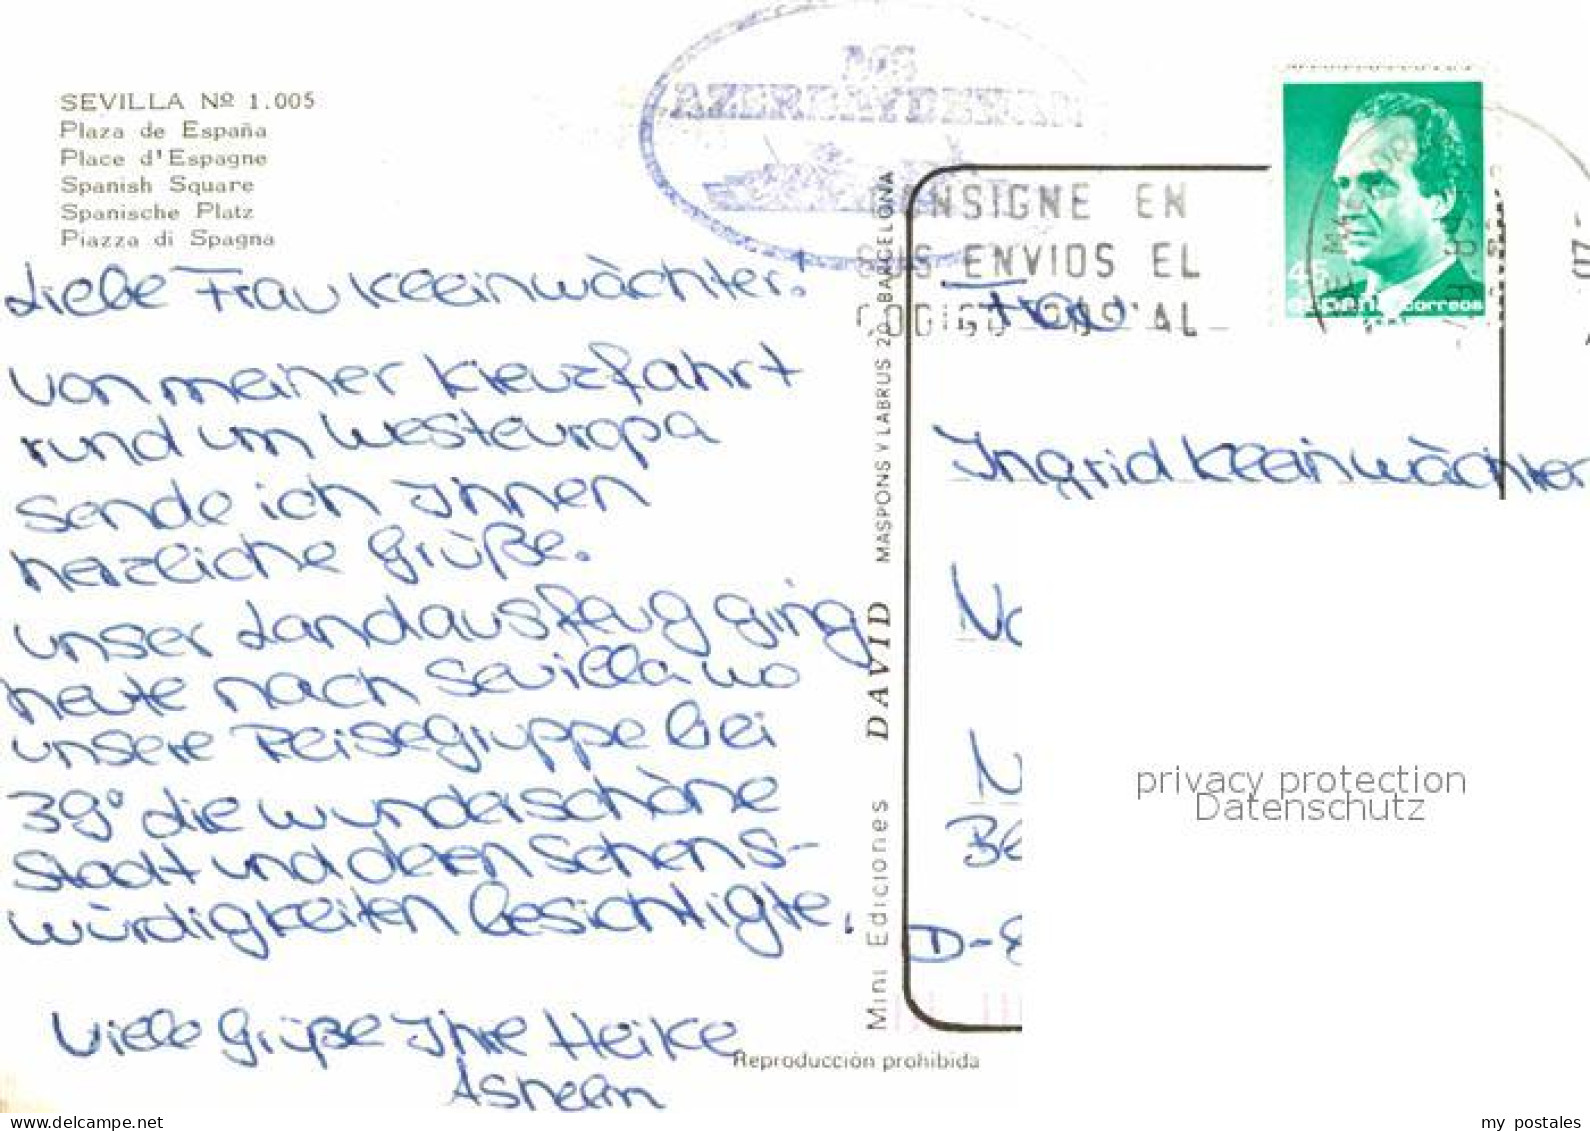 SEVILLA Nº 1.005
Plaza de España
Place d'Espagne
Spanish Square
Spanische Platz
Piazza di Spagna
Liebe Frau Kleinwächter!
von meiner Kreuzfahrt
rund um Westeuropa
sende ich Ihnen
herzliche Grüße.
unser Landausflug ging
heute nach Sevilla wo
unsere Reisegruppe bei
39° die wunderschöne
Stadt und deren Sehens-
würdigkeiten besichtigte.
Viele Grüße Ihre Heike
Ashelm
Mini Ediciones DAVID MASPONS Y LABRUS 20 - BARCELONA
Reproducción prohibida
M/S
AZERBAYDZHAN
CONSIGNE EN
SUS ENVIOS EL
CODIGO POSTAL
45
españa correos
Frau
Ingrid Kleinwächter
D-8
privacy protection
Datenschutz
delcampe.net
my_postales